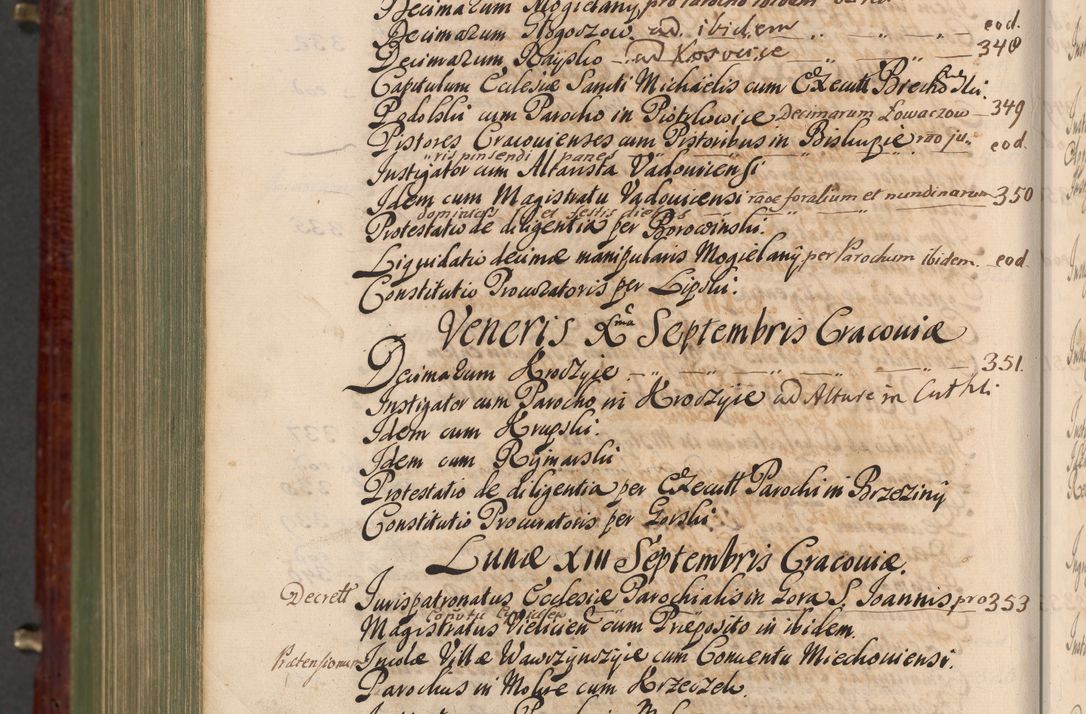 Decimarum Mogielany, pro Parocho
Decimarum Głogoczow ad ibidem „ — „ — „ — eod.
Decimarum Raysko — ad Kosocice — „ — „ — 348
Capitulum Ecclesiæ Sancti Michaelis cum Executt
Podolski cum Parocho in Piotrkowice Decimarum Łowaczow — 349
Pistores Cracouienses cum Pistoribus in Biskupie rão ju- eod.
ris pinsendi panes
Instigator cum Altarista Vadouicensi
Idem cum Magistratu Vadouicensi rãoe foralium et nundinarum 350
dominicis et festis diebus
Protestatio de diligentia per Borowinski.
Liquidatio decimæ manipularis Mogielany, per Parochum ibidem. eod.
Constitutio Procuratoris per Lipski.
Veneris Xma Septembris Cracouiæ
Decimarum Krodzyie — „ — „ — „ — „ — 351.
Instigator cum Parocho in Krodzyie ad Alture in
Idem cum Krupski.
Idem cum Rymarski
Protestatio de diligentia per Executt Parochi in Brzeziny
Constitutio Procuratoris per Gorski.
Lunæ XIII Septembris Cracouiæ.
Decrett Jurispatronatus Ecclesiæ Parochialis in Gora S. Joannis, pro 353
Magistratus Vielicien cum Præposito in ibidem.
Prætensionum Incolæ Villæ Wawrzynczyce cum Conuentu Miechouiensi.
Parochus in Mokre cum Krzeczek.